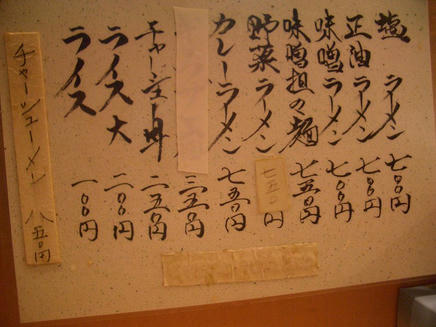 塩ラーメン 七〇〇円
正油ラーメン 七〇〇円
味噌ラーメン 七〇〇円
味噌担々麺 七五〇円
野菜ラーメン 七五〇円
カレーラーメン 七五〇円
三五〇円
チャーシュー丼 二五〇円
ライス大 二〇〇円
ライス 一〇〇円
チャーシューメン 八五〇円